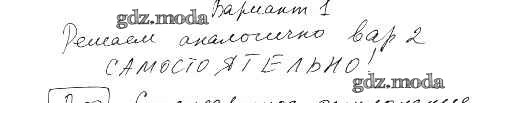 Вариант 1
gdz.moda
Решаем аналогично вар 2
САМОСТОЯТЕЛЬНО!
gdz.moda